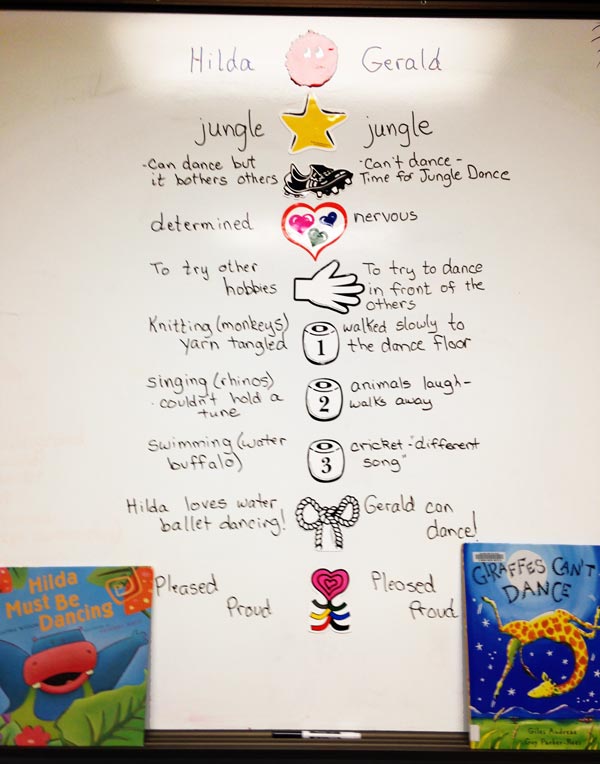 Hilda Gerald
jungle jungle
-Can dance but
it bothers others
-Can't dance -
Time for Jungle Dance
determined nervous
To try other
hobbies
To try to dance
in front of the
others
Knitting (monkeys)
yarn tangled
1
walked slowly to
the dance floor
singing (rhinos)
·couldn't hold a
tune
2
animals laugh-
walks away
swimming (water
buffalo)
3
cricket-"different
song"
Hilda loves water
ballet dancing!
Gerald can
dance!
Pleased
Proud
Pleased
Proud
Hilda
Must Be
Dancing
GIRAFFES CAN'T
DANCE
Giles Andreae
Guy Parker-Rees